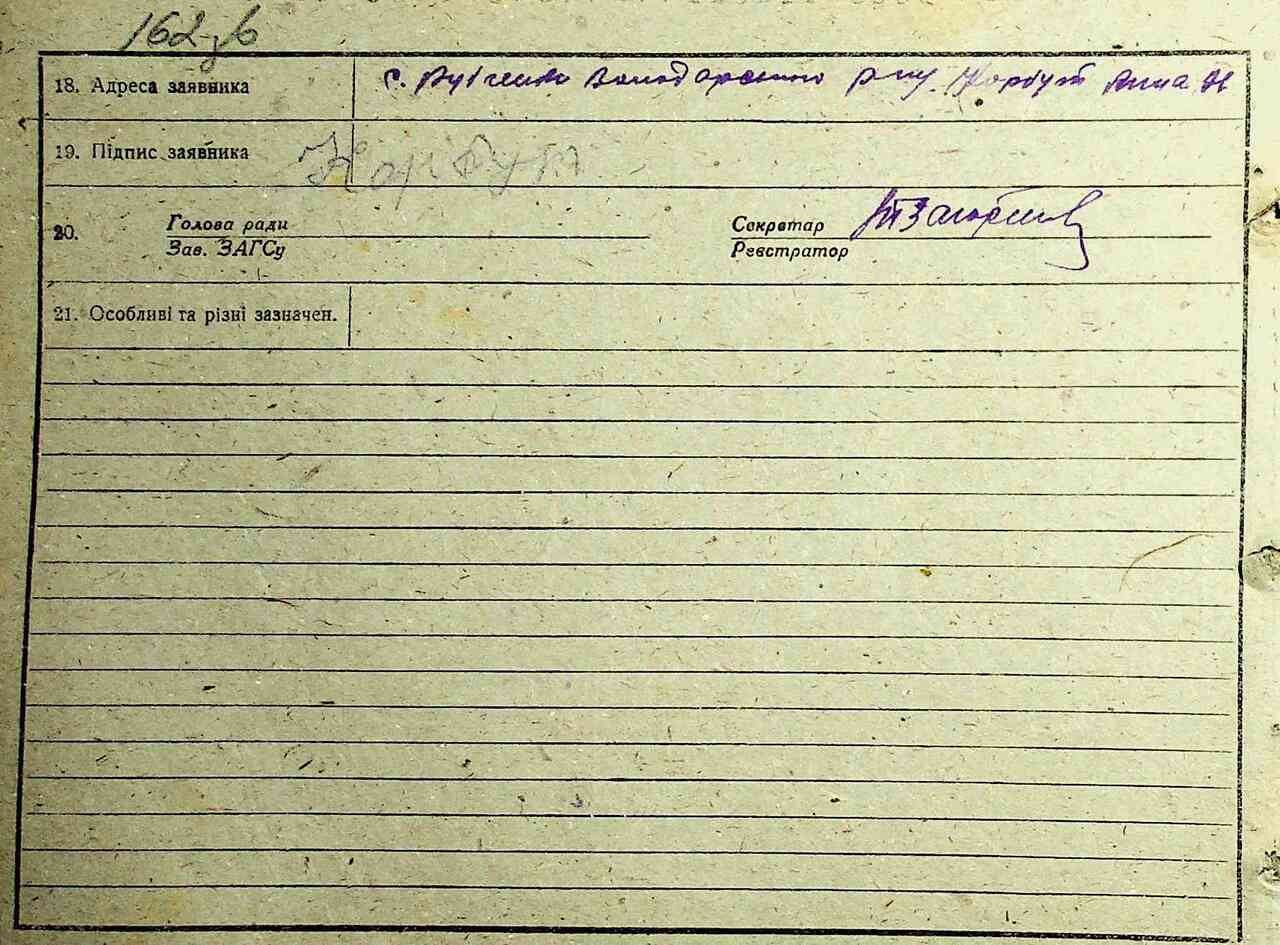 162 зв
18. Адреса заявника с. Рубченки Володарського р-ну. Корбут Анна Н
19. Підпис заявника Корбут
20. Голова ради Секретар
Зав. ЗАГСу Реєстратор
21. Особливі та різні зазначен.